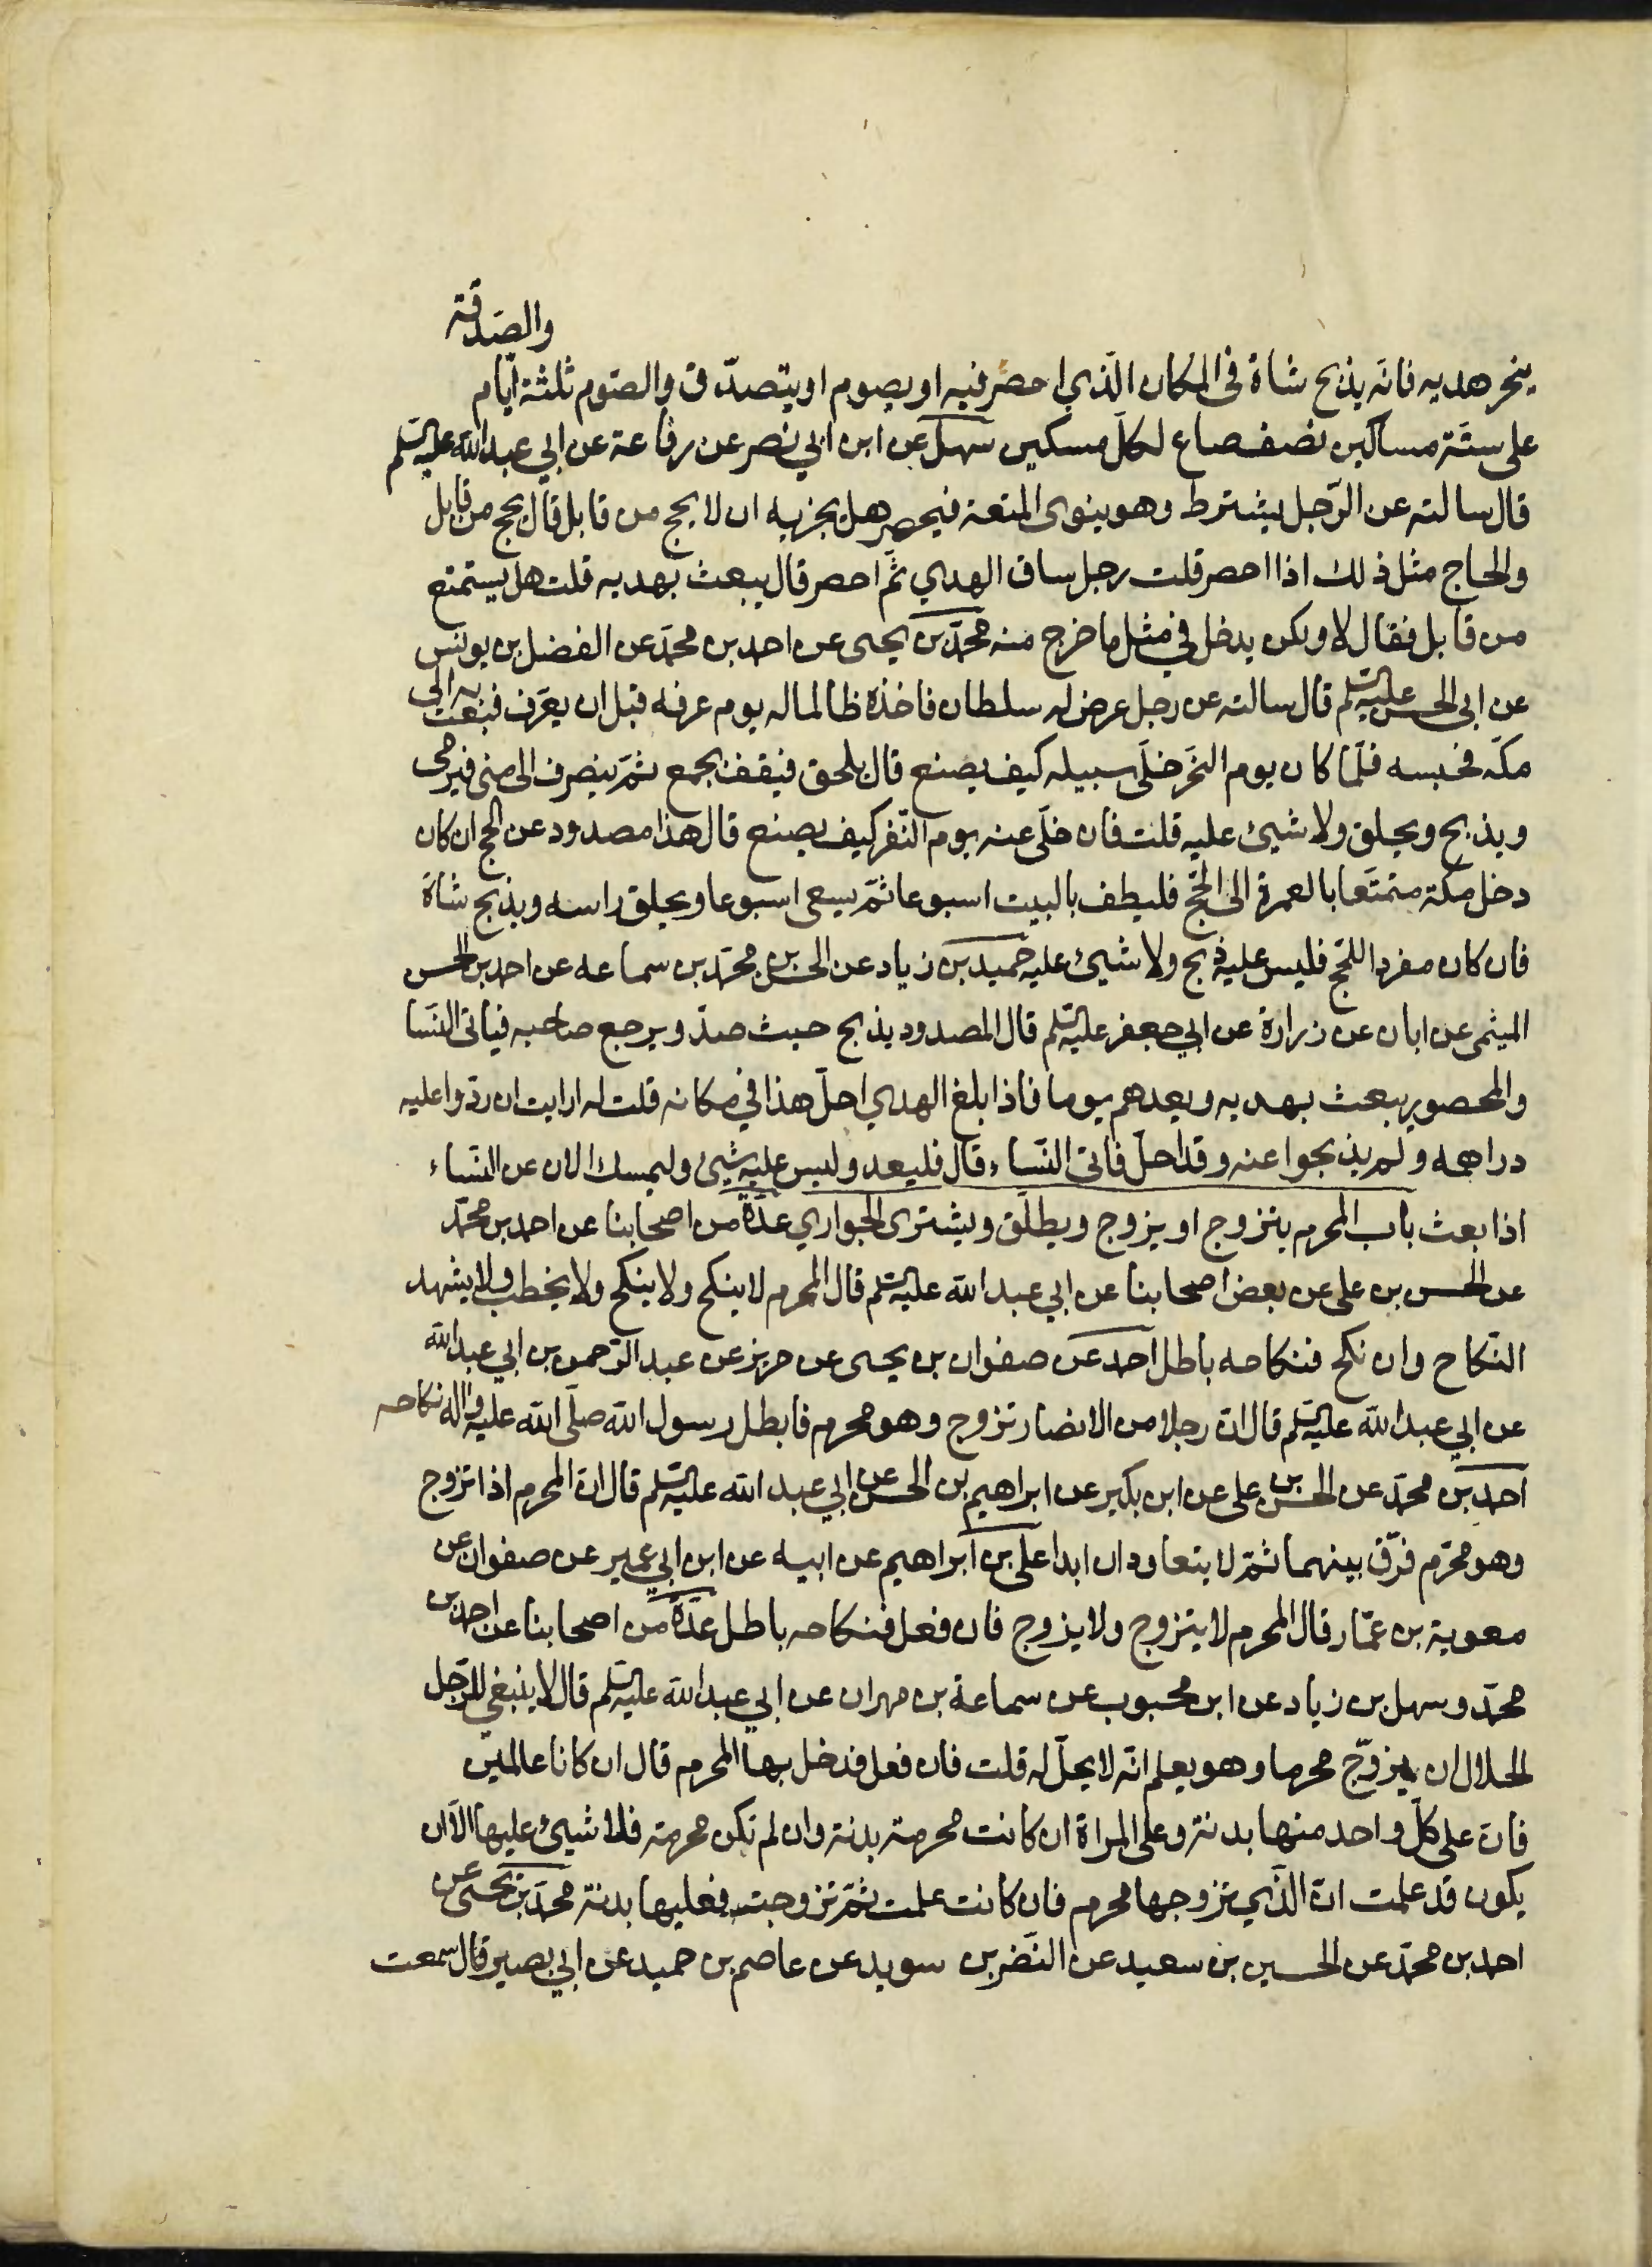 والصدقة
ينحر هديه فانّه يذبح شاة فى المكان الّذي احصر فيه او يصوم او يتصدّق والصّوم ثلثة ايّام
على ستّة مساكين نصف صاع لكلّ مسكين سهل عن ابن ابي نصر عن رفاعة عن ابي عبدالله عليه السّلم
قال سالته عن الرّجل يشترط وهو ينوى المتعة فيحصر هل يجزيه ان لا يحج من قابل قال يحج من قابل
والحاج مثل ذلك اذا احصر قلت رجل ساق الهدي ثمّ احصر قال يبعث بهديه قلت هل يستمتع
من قابل فقال لا ولكن يدخل في مثل ما خرج منه محمّد بن يحيى عن احمد بن محمّد عن الفضل بن يونس
عن ابى الحسن عليه السّلم قال سالته عن رجل عرض له سلطان فاخذه ظالما له يوم عرفه قبل ان يعرّف فبعث به الى
مكّه فحبسه فلمّا كان يوم النحّر خلّى سبيله كيف يصنع قال يلحق فيقف بجمع ثمّ ينصرف الى منى فيرمى
ويذبح ويحلق ولا شيئ عليه قلت فان خلّى عنه يوم النّفر كيف يصنع قال هذا مصدود عن الحج ان كان
دخل مكّة متمتّعا بالعمرة الى الحجّ فليطف بالبيت اسبوعا ثمّ يسعى اسبوعا ويحلق راسه ويذبح شاة
فان كان مفردا للحّج فليس عليه ذبح ولا شيئ عليه حميد بن زياد عن الحسن بن محمّد بن سماعه عن احمد بن الحسن
الميثمى عن ابان عن زرارة عن ابي جعفر عليه السّلم قال المصدود يذبح حيث صدّ ويرجع صاحبه فياتى النسّا
والمحصور يبعث بهديه ويعدهم يوما فاذا بلغ الهدي احلّ هذا في مكانه قلت له ارايت ان ردّوا عليه
دراهمه ولم يذبحوا عنه وقد احلّ فاتى النّساء قال فليعد وليس عليه شيئ وليمسك الان عن النّساء
اذا بعث باب المحرم يتزوج او يزوج ويطلّق ويشترى الجواري عدّة من اصحابنا عن احمد بن محمّد
عن الحسن بن على عن بعض اصحابنا عن ابي عبدالله عليه السّلم قال المحرم لا ينكح ولا ينكح ولا يخطب ولا يشهد
النّكاح وان نكح فنكاحه باطل احمد عن صفوان بن يحيى عن حريز عن عبد الرّحمن بن ابي عبدالله
عن ابي عبدالله عليه السّلم قال انّ رجلا من الانصار تزوج وهو محرم فابطل رسول الله صلّى الله عليه واله نكاحه
احمد بن محمّد عن الحسن بن على عن ابن بكير عن ابراهيم بن الحسن عن ابي عبد الله عليه السّلم قال انّ المحرم اذا تزوج
وهو محرّم فرّق بينهما ثمّ لا يتعاودان ابدا على بن ابراهيم عن ابيه عن ابن ابي عمير عن صفوان عن
معوية بن عمّار قال المحرم لا يتزوج ولا يزوج فان فعل فنكاحه باطل عدّة من اصحابنا عن احمد بن
محمّد وسهل بن زياد عن ابن محبوب عن سماعة بن مهران عن ابي عبدالله عليه السّلم قال لا ينبغي للرّجل
الحلال ان يزوّج محرما وهو يعلم انّه لا يحلّ له قلت فان فعل فدخل بها المحرم قال ان كانا عالمين
فانّ على كلّ واحد منهما بدنة وعلى المراة ان كانت محرمة بدنة وان لم تكن محرمة فلا شيئ عليها الاّ ان
يكون قد علمت انّ الّذي تزوجها محرم فان كانت علمت ثمّ تزوجته فعليها بدنة محمّد بن يحيى عن
احمد بن محمّد عن الحسين بن سعيد عن النّضر بن سويد عن عاصم بن حميد عن ابي بصير قال سمعت